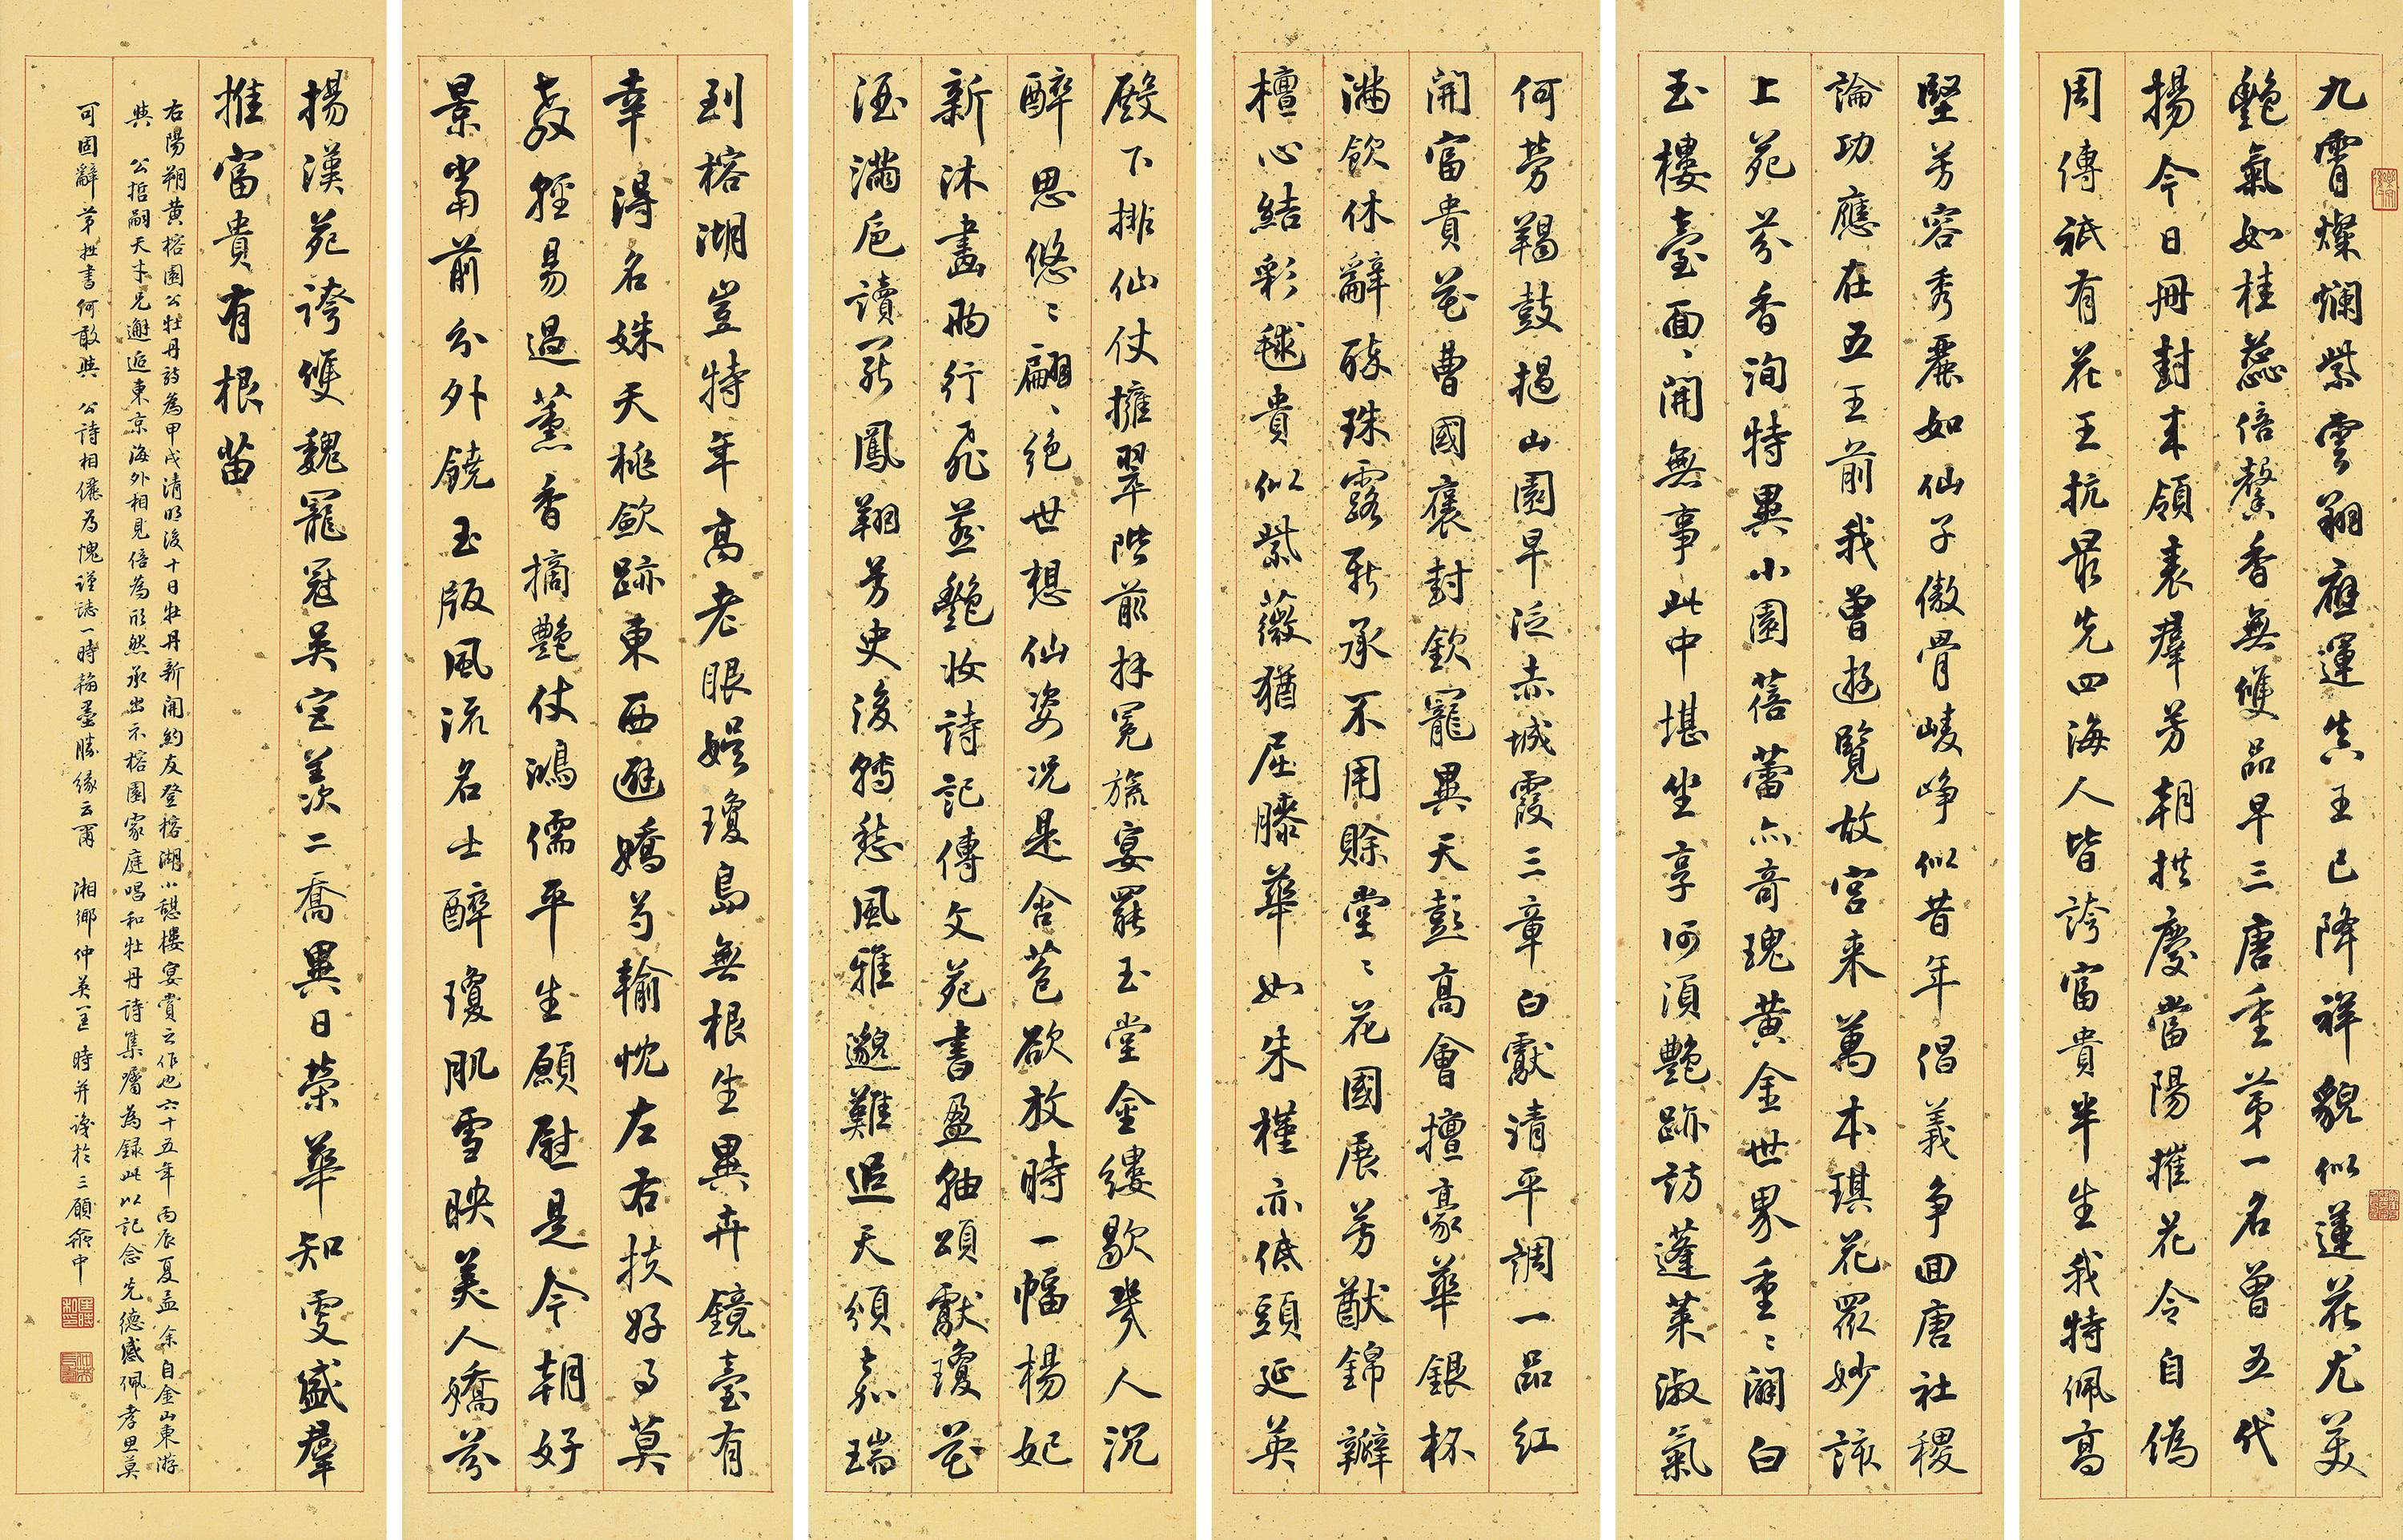 九霄燦爛紫雲翔應運真王已降祥貌似蓮花尤美
艷氣如桂蕊倍馨香無雙品早三唐重第一名曾五代
揚今日冊封來領袤群芳朝拱慶當陽摧花令自偽
周傳祇有花王抗最先四海人皆誇富貴半生我特佩高
堅芳容秀麗如仙子傲骨崚崢似昔年倡義爭回唐社稷
論功應在五王前我曾遊覽故宮來萬本琪花眾妙諧
上苑芬香洵特異小園蓓蕾亦奇瑰黃金世界重重闢白
玉樓臺面面開無事此中堪坐享何須艷跡訪蓬萊淑氣
何勞羯鼓撾山園早泛赤城霞三章白獻清平調一品紅
開富貴花曹國褒封欽寵異天彭高會擅豪華銀杯
滿飲休辭醉珠露新承不用賒堂堂花國展芳猷錦瓣
檀心結彩毬貴似紫薇猶屈膝華如朱槿亦低頭延英
殿下排仙仗擁翠階前拜冕旒宴罷玉堂金縷歇幾人沉
醉思悠悠翩翩絕世想仙姿況是含苞欲放時一幅楊妃
新沐畫兩行飛燕艷妝詩記傳文苑書盈軸頌獻瓊花
酒滿卮讀罷鳳翔芳史後轉愁風雅邈難追天頒嘉瑞
到榕湖豈特年高老眼娛瓊島無根生異卉鏡臺有
幸得名姝夭桃斂跡東西避嬌芍輸忱左右扶好子莫
教輕易過薰香摘艷仗鴻儒平生願慰是今朝好
景當前分外饒玉版風流名士醉瓊肌雪映美人嬌芬
揚漢苑誇雙魏寵冠吳宮羡二喬異日榮華知更盛群
推富貴有根苗
右陽朔黃榕園公牡丹詩為甲戌清明後十日牡丹新開約友登榕湖小憩樓宴賞之作也六十五年丙辰夏孟余自金山東游
與 公哲嗣天才兄邂逅東京海外相見倍為欣然承出示榕園家庭唱和牡丹詩集囑為錄此以記念先德感佩孝思莫
可固辭第拙書何敢與 公詩相儷為愧謹誌一時翰墨勝緣云爾 湘鄉仲英匡時并識於三願齋中